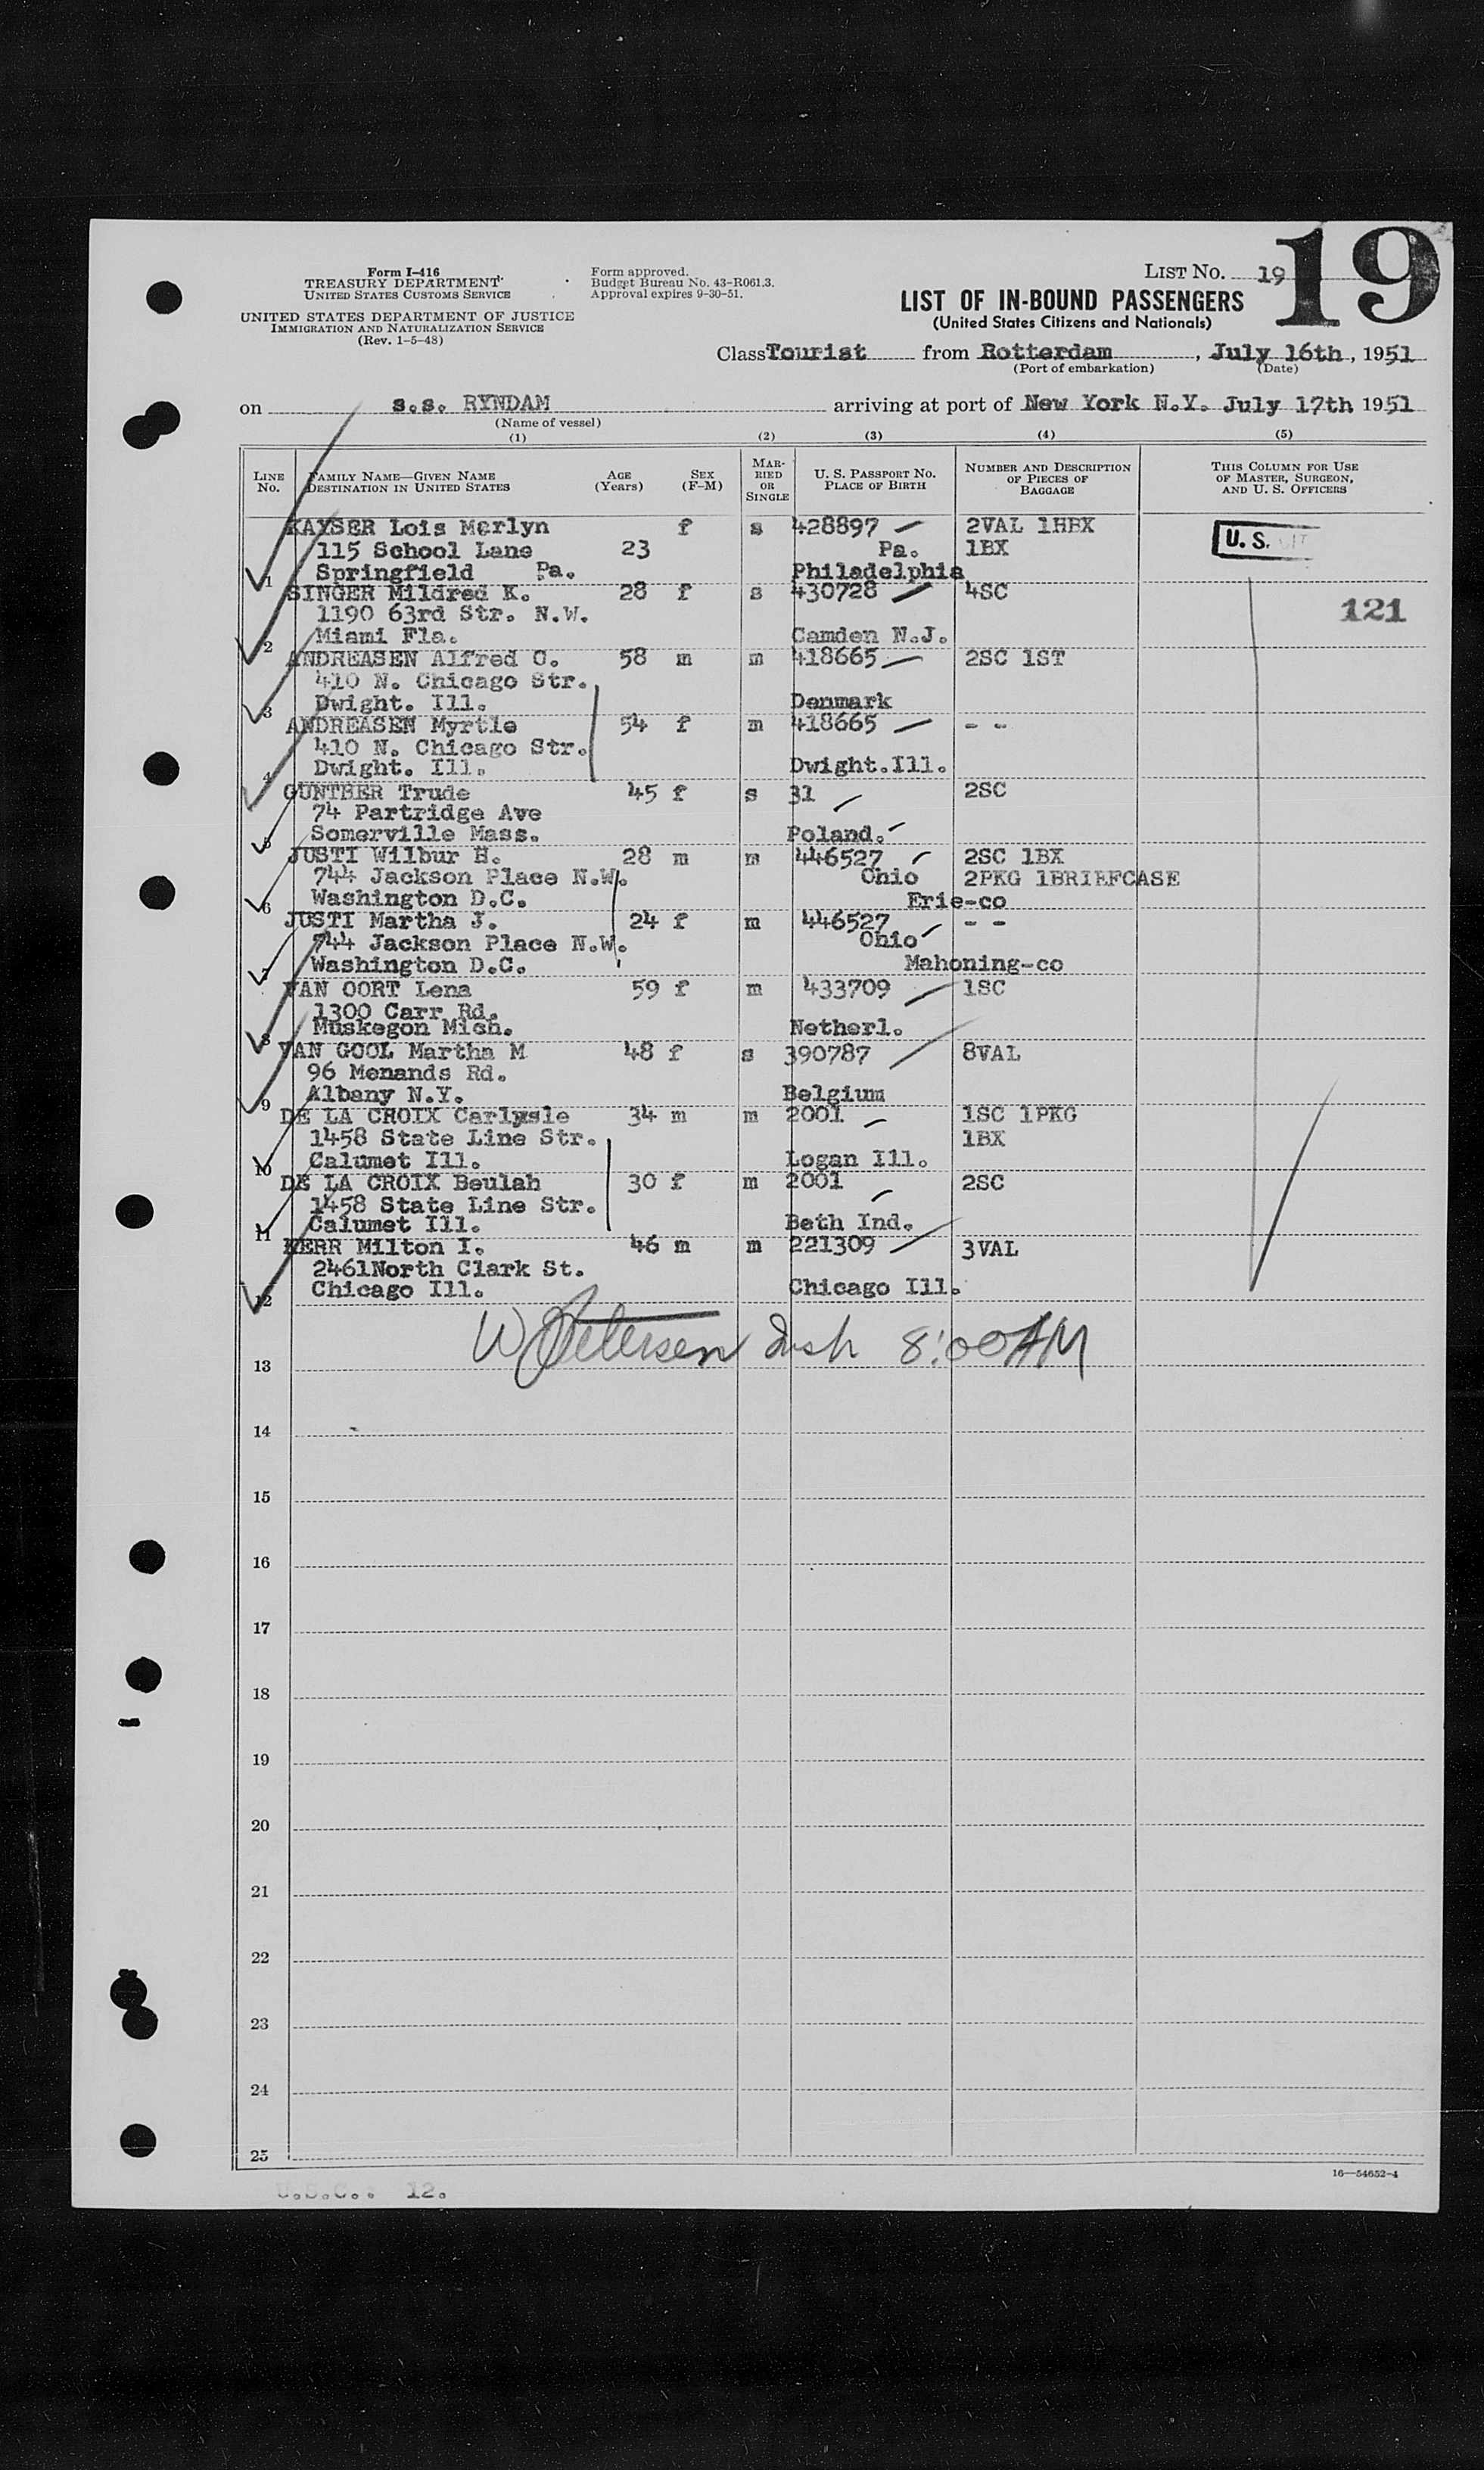 Form I-416
TREASURY DEPARTMENT
UNITED STATES CUSTOMS SERVICE
UNITED STATES DEPARTMENT OF JUSTICE
IMMIGRATION AND NATURALIZATION SERVICE
(Rev. 1-5-48)
Form approved.
Budget Bureau No. 43-R061.3.
Approval expires 9-30-51.
LIST NO. 19
19
LIST OF IN-BOUND PASSENGERS
(United States Citizens and Nationals)
Class Tourist from Rotterdam, July 16th, 1951
(Port of embarkation) (Date)
on s.s. RYNDAM arriving at port of New York N.Y. July 17th 1951
(Name of vessel)
(1) (2) (3) (4) (5)
LINE No. FAMILY NAME—GIVEN NAME DESTINATION IN UNITED STATES AGE (Years) SEX (F-M) MARRIED OR SINGLE U. S. PASSPORT NO. PLACE OF BIRTH NUMBER AND DESCRIPTION OF PIECES OF BAGGAGE THIS COLUMN FOR USE OF MASTER, SURGEON, AND U. S. OFFICERS
KAYSER Lois Merlyn f s 428897 2VAL 1HBX U.S. CIT
115 School Lane 23 Pa. 1BX
1 Springfield Pa. Philadelphia
SINGER Mildred K. 28 f s 430728 4SC
1190 63rd Str. N.W. 121
2 Miami Fla. Camden N.J.
ANDREASEN Alfred O. 58 m m 418665 2SC 1ST
410 N. Chicago Str.
3 Dwight. Ill. Denmark
ANDREASEN Myrtle 54 f m 418665 - -
410 N. Chicago Str.
4 Dwight. Ill. Dwight.Ill.
GUNTHER Trude 45 f s 31 2SC
74 Partridge Ave
5 Somerville Mass. Poland.
JUSTI Wilbur H. 28 m m 446527 2SC 1BX
744 Jackson Place N.W. Ohio 2PKG 1BRIEFCASE
6 Washington D.C. Erie-co
JUSTI Martha J. 24 f m 446527 - -
744 Jackson Place N.W. Ohio
7 Washington D.C. Mahoning-co
VAN OORT Lena 59 f m 433709 1SC
1300 Carr Rd.
8 Muskegon Mich. Netherl.
VAN GOOL Martha M 48 f s 390787 8VAL
96 Menands Rd.
9 Albany N.Y. Belgium
DE LA CROIX Carlysle 34 m m 2001 1SC 1PKG
1458 State Line Str. 1BX
10 Calumet Ill. Logan Ill.
DE LA CROIX Beulah 30 f m 2001 2SC
1458 State Line Str.
11 Calumet Ill. Beth Ind.
KERR Milton I. 46 m m 221309 3VAL
2461North Clark St.
12 Chicago Ill. Chicago Ill.
Petersen 8:00AM
13
14
15
16
17
18
19
20
21
22
23
24
25
16—54652-4
U.S.C.: 12.